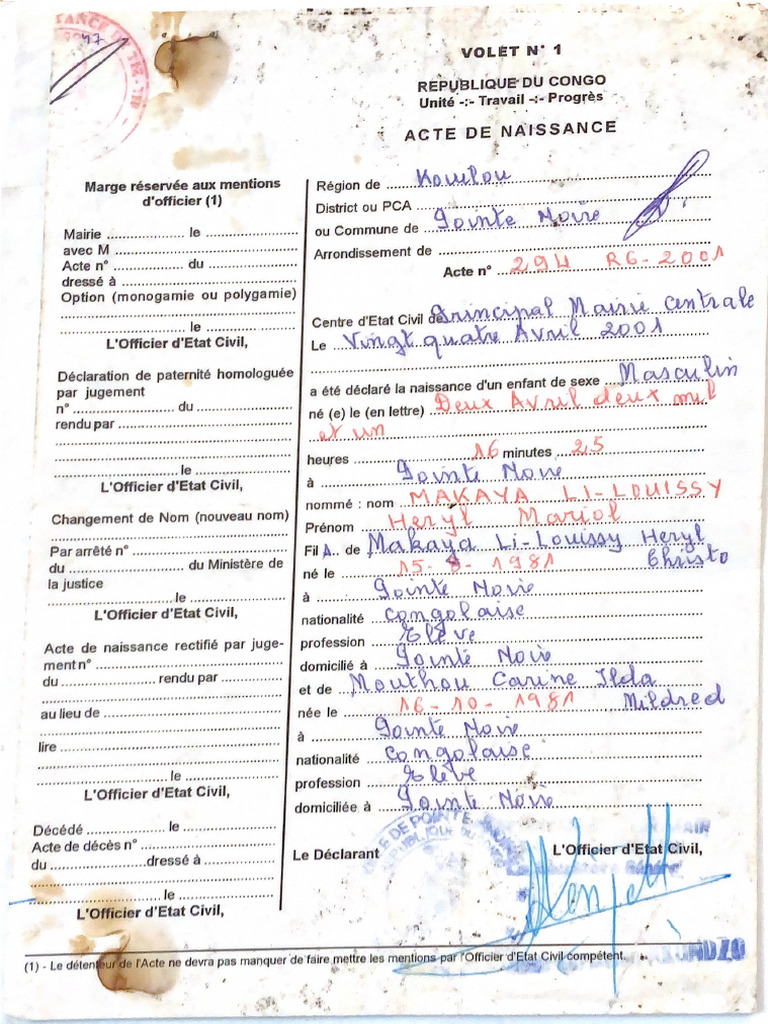 47
VOLET N° 1
REPUBLIQUE DU CONGO
Unité -:- Travail -:- Progrès
ACTE DE NAISSANCE
Marge réservée aux mentions
d'officier (1)
Mairie .................... le ....................
avec M ..............................
Acte n° .................... du ....................
dressé à ..............................
Option (monogamie ou polygamie)
.............................. le ....................
L'Officier d'Etat Civil,
Déclaration de paternité homologuée
par jugement
n° .................... du ....................
rendu par ..............................
.............................. le ....................
L'Officier d'Etat Civil,
Changement de Nom (nouveau nom)
Par arrêté n° ..............................
du .................... du Ministère de
la justice
.............................. le ....................
L'Officier d'Etat Civil,
Acte de naissance rectifié par juge-
ment n° ..............................
du .................... rendu par ..........
au lieu de ..............................
lire ..............................
.............................. le ....................
L'Officier d'Etat Civil,
Décédé .................... le ....................
Acte de décès n° ..............................
du .................... dressé à ....................
.............................. le ....................
L'Officier d'Etat Civil,
Région de Kouilou
District ou PCA
ou Commune de Pointe Noire
Arrondissement de
Acte n° 294 RG-2001
Centre d'Etat Civil de Principal Mairie Centrale
Le Vingt quatre Avril 2001
a été déclaré la naissance d'un enfant de sexe Masculin
né (e) le (en lettre) Deux Avril deux mil
et un
heures 16 minutes 25
à Pointe Noire
nommé : nom MAKAYA LI-LOUISSY
Prénom Heryl Mariol
Fil A. de Makaya Li-Louissy Heryl
Christo
né le 15-8-1981
à Pointe Noire
nationalité Congolaise
profession Elève
domicilié à Pointe Noire
et de Mouthou Carine Ilda
Mildred
née le 16-10-1981
à Pointe Noire
nationalité Congolaise
profession Elève
domiciliée à Pointe Noire
Le Déclarant
L'Officier d'Etat Civil,
(1) - Le détenteur de l'Acte ne devra pas manquer de faire mettre les mentions par l'Officier d'Etat Civil compétent.